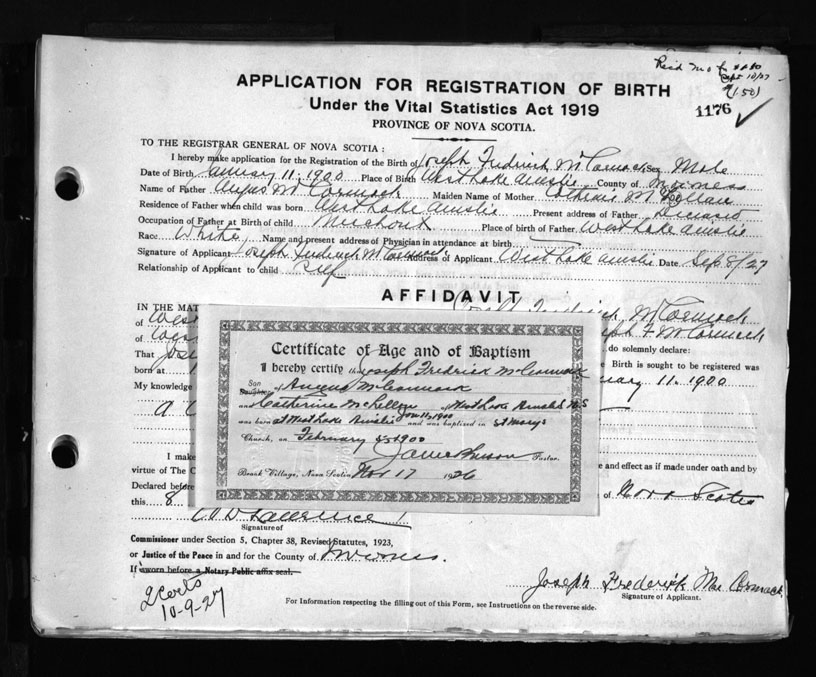 Sept 10/27
(1.50)
APPLICATION FOR REGISTRATION OF BIRTH
1176
Under the Vital Statistics Act 1919
PROVINCE OF NOVA SCOTIA.
TO THE REGISTRAR GENERAL OF NOVA SCOTIA:
I hereby make application for the Registration of the Birth of Joseph Fredrick McCormack Sex Male
Date of Birth January 11. 1900 Place of Birth West Lake Ainslie County of Inverness
Name of Father Angus McCormack Maiden Name of Mother Catherine McLellan
Residence of Father when child was born West Lake Ainslie Present address of Father Deceased
Occupation of Father at Birth of child Merchant Place of birth of Father West Lake Ainslie
Race White Name and present address of Physician in attendance at birth
Signature of Applicant Joseph Fredrick McCormack Address of Applicant West Lake Ainslie Date Sep 8/27
Relationship of Applicant to child Self
AFFIDAVIT
IN THE MAT Joseph Fredrick McCormack
of West Joseph F McCormack
of do solemnly declare:
That Jos Birth is sought to be registered was
born at ary 11. 1900
My knowledge
Certificate of Age and of Baptism
I hereby certify that Joseph Fredrick McCormack
Son
Daughter of Angus McCormack
and Catherine McLellan of West Lake Ainslie N.S
was born at West Lake Ainslie Jan 11, 1900 and was baptized in St Marys
Church, on February 1900
Pastor.
Broad Village, Nova Scotia Nov 17 1926
I make e and effect as if made under oath and by
virtue of The C
Declared before of Nova Scotia
this 8
Signature of
Commissioner under Section 5, Chapter 38, Revised Statutes, 1923,
or Justice of the Peace in and for the County of Inverness.
If sworn before a Notary Public affix seal.
2 Certs
10-9-27
Joseph Frederick Mac Cormack
Signature of Applicant.
For Information respecting the filling out of this Form, see Instructions on the reverse side.